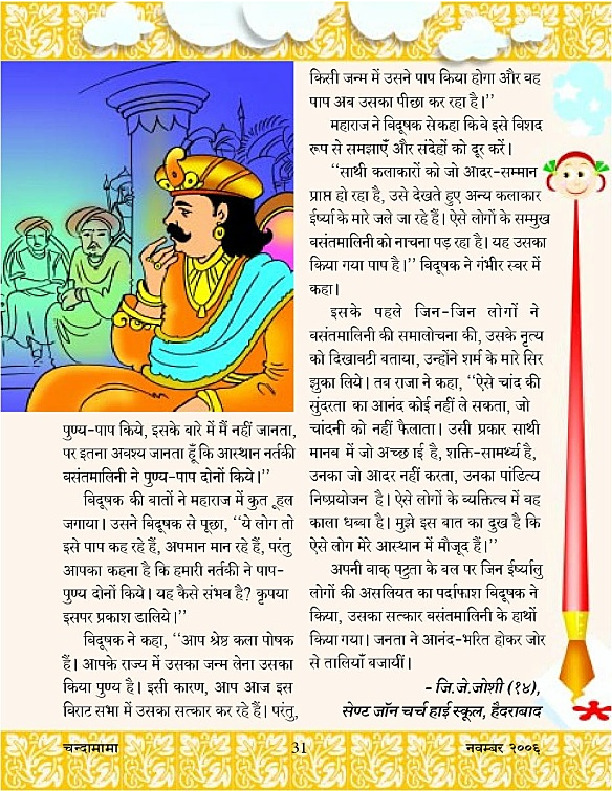 पुण्य-पाप किये, इसके बारे में मैं नहीं जानता,
पर इतना अवश्य जानता हूँ कि आस्थान नर्तकी
वसंतमालिनी ने पुण्य-पाप दोनों किये।''
विदूषक की बातों ने महाराज में कुतूहल
जगाया। उसने विदूषक से पूछा, ''ये लोग तो
इसे पाप कह रहे हैं, अपमान मान रहे हैं, परंतु
आपका कहना है कि हमारी नर्तकी ने पाप-
पुण्य दोनों किये। यह कैसे संभव है? कृपया
इसपर प्रकाश डालिये।''
विदूषक ने कहा, ''आप श्रेष्ठ कला पोषक
हैं। आपके राज्य में उसका जन्म लेना उसका
किया पुण्य है। इसी कारण, आप आज इस
विराट सभा में उसका सत्कार कर रहे हैं। परंतु,
किसी जन्म में उसने पाप किया होगा और वह
पाप अब उसका पीछा कर रहा है।''
महाराज ने विदूषक से कहा कि वे इसे विशद
रूप से समझाएँ और संदेहों को दूर करें।
''साथी कलाकारों को जो आदर-सम्मान
प्राप्त हो रहा है, उसे देखते हुए अन्य कलाकार
ईर्ष्या के मारे जले जा रहे हैं। ऐसे लोगों के सम्मुख
वसंतमालिनी को नाचना पड़ रहा है। यह उसका
किया गया पाप है।'' विदूषक ने गंभीर स्वर में
कहा।
इसके पहले जिन-जिन लोगों ने
वसंतमालिनी की समालोचना की, उसके नृत्य
को दिखावटी बताया, उन्होंने शर्म के मारे सिर
झुका लिये। तब राजा ने कहा, ''ऐसे चांद की
सुंदरता का आनंद कोई नहीं ले सकता, जो
चांदनी को नहीं फैलाता। उसी प्रकार साथी
मानव में जो अच्छाई है, शक्ति-सामर्थ्य है,
उनका जो आदर नहीं करता, उनका पांडित्य
निष्प्रयोजन है। ऐसे लोगों के व्यक्तित्व में वह
काला धब्बा है। मुझे इस बात का दुख है कि
ऐसे लोग मेरे आस्थान में मौजूद हैं।''
अपनी वाक् पटुता के बल पर जिन ईर्ष्यालु
लोगों की असलियत का पर्दाफाश विदूषक ने
किया, उसका सत्कार वसंतमालिनी के हाथों
किया गया। जनता ने आनंद-भरित होकर जोर
से तालियाँ बजायीं।
- जि.जे.जोशी (१४),
सेण्ट जॉन चर्च हाई स्कूल, हैदराबाद
चन्दामामा
31
नवम्बर २००६